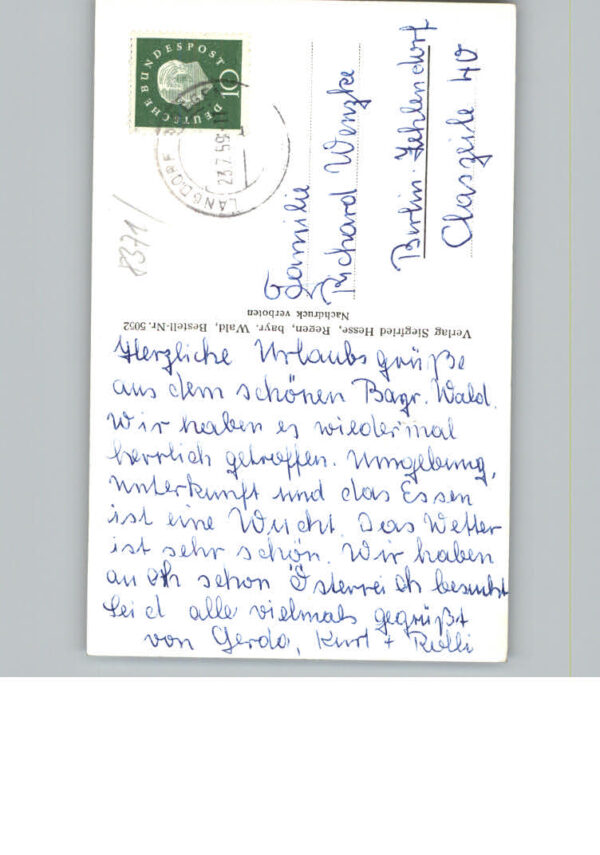 DEUTSCHE BUNDESPOST
10
LANGDORF
23.7.59
8371/
Familie
Richard Wenzke
Berlin-Zehlendorf
Claszeile 40
Verlag Siegfried Hesse, Regen, bayr. Wald, Bestell-Nr. 5052
Nachdruck verboten
Herzliche Urlaubsgrüße
aus dem schönen Bayr. Wald.
Wir haben es wiedermal
herrlich getroffen. Umgebung,
Unterkunft und das Essen
ist eine Wucht. Das Wetter
ist sehr schön. Wir haben
auch schon Österreich besucht
Seid alle vielmals gegrüßt
von Gerda, Kurt +